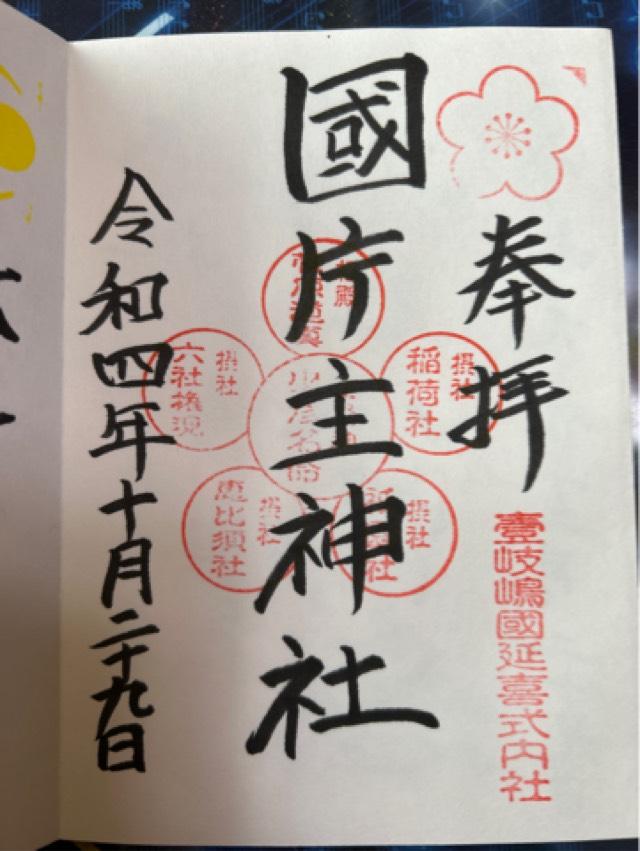 奉拝
壹岐嶋國延喜式内社
國片主神社
摂社
稲荷社
摂社
摂社
六社権現
摂社
恵比須社
令和四年十月二十九日